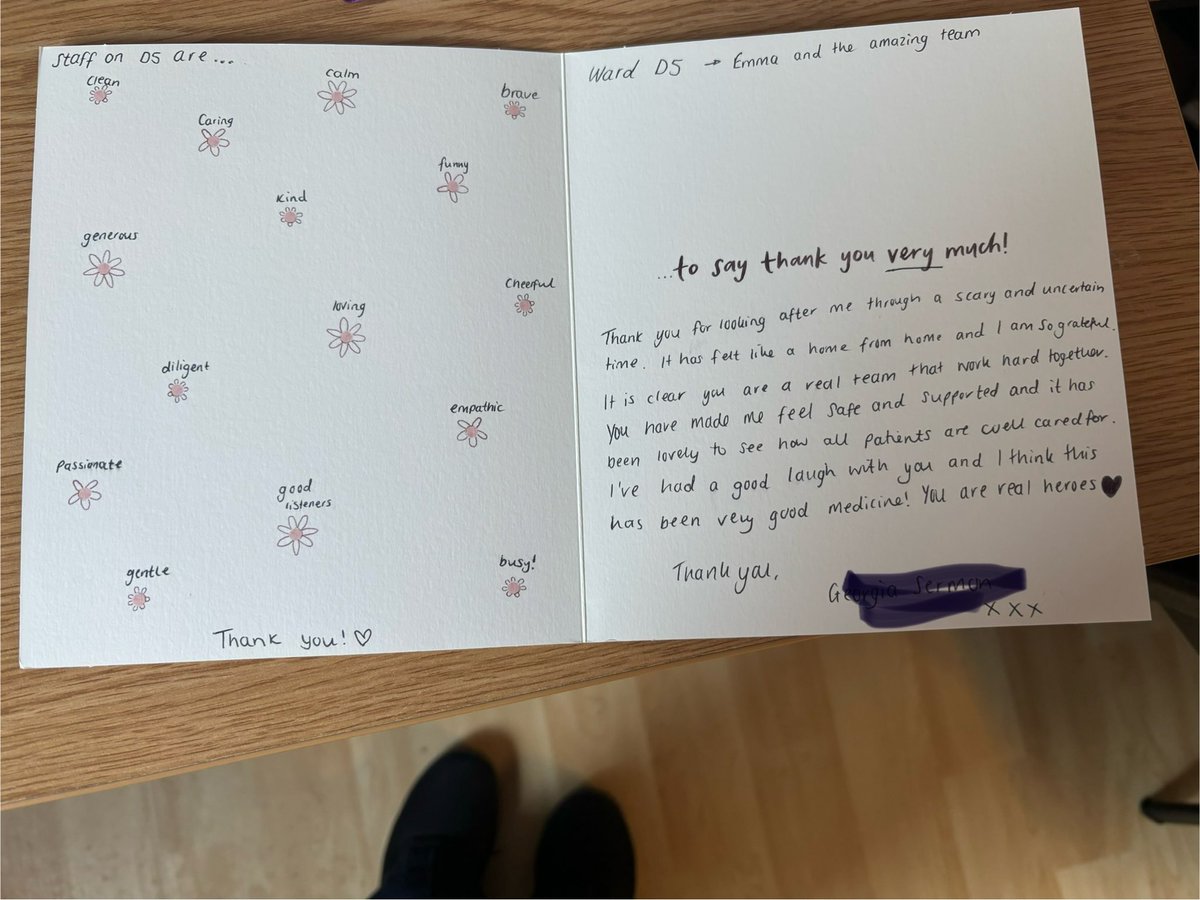 Staff on D5 are...
clean
calm
brave
Caring
funny
kind
generous
Cheerful
loving
diligent
empathic
Passionate
good
listeners
gentle
busy!
Thank you! ♡
Ward D5 → Emma and the amazing team
...to say thank you very much!
Thank you for looking after me through a scary and uncertain
time. It has felt like a home from home and I am so grateful.
It is clear you are a real team that work hard together.
You have made me feel safe and supported and it has
been lovely to see how all patients are well cared for.
I've had a good laugh with you and I think this
has been very good medicine! You are real heroes ♥
Thank you,
x x x